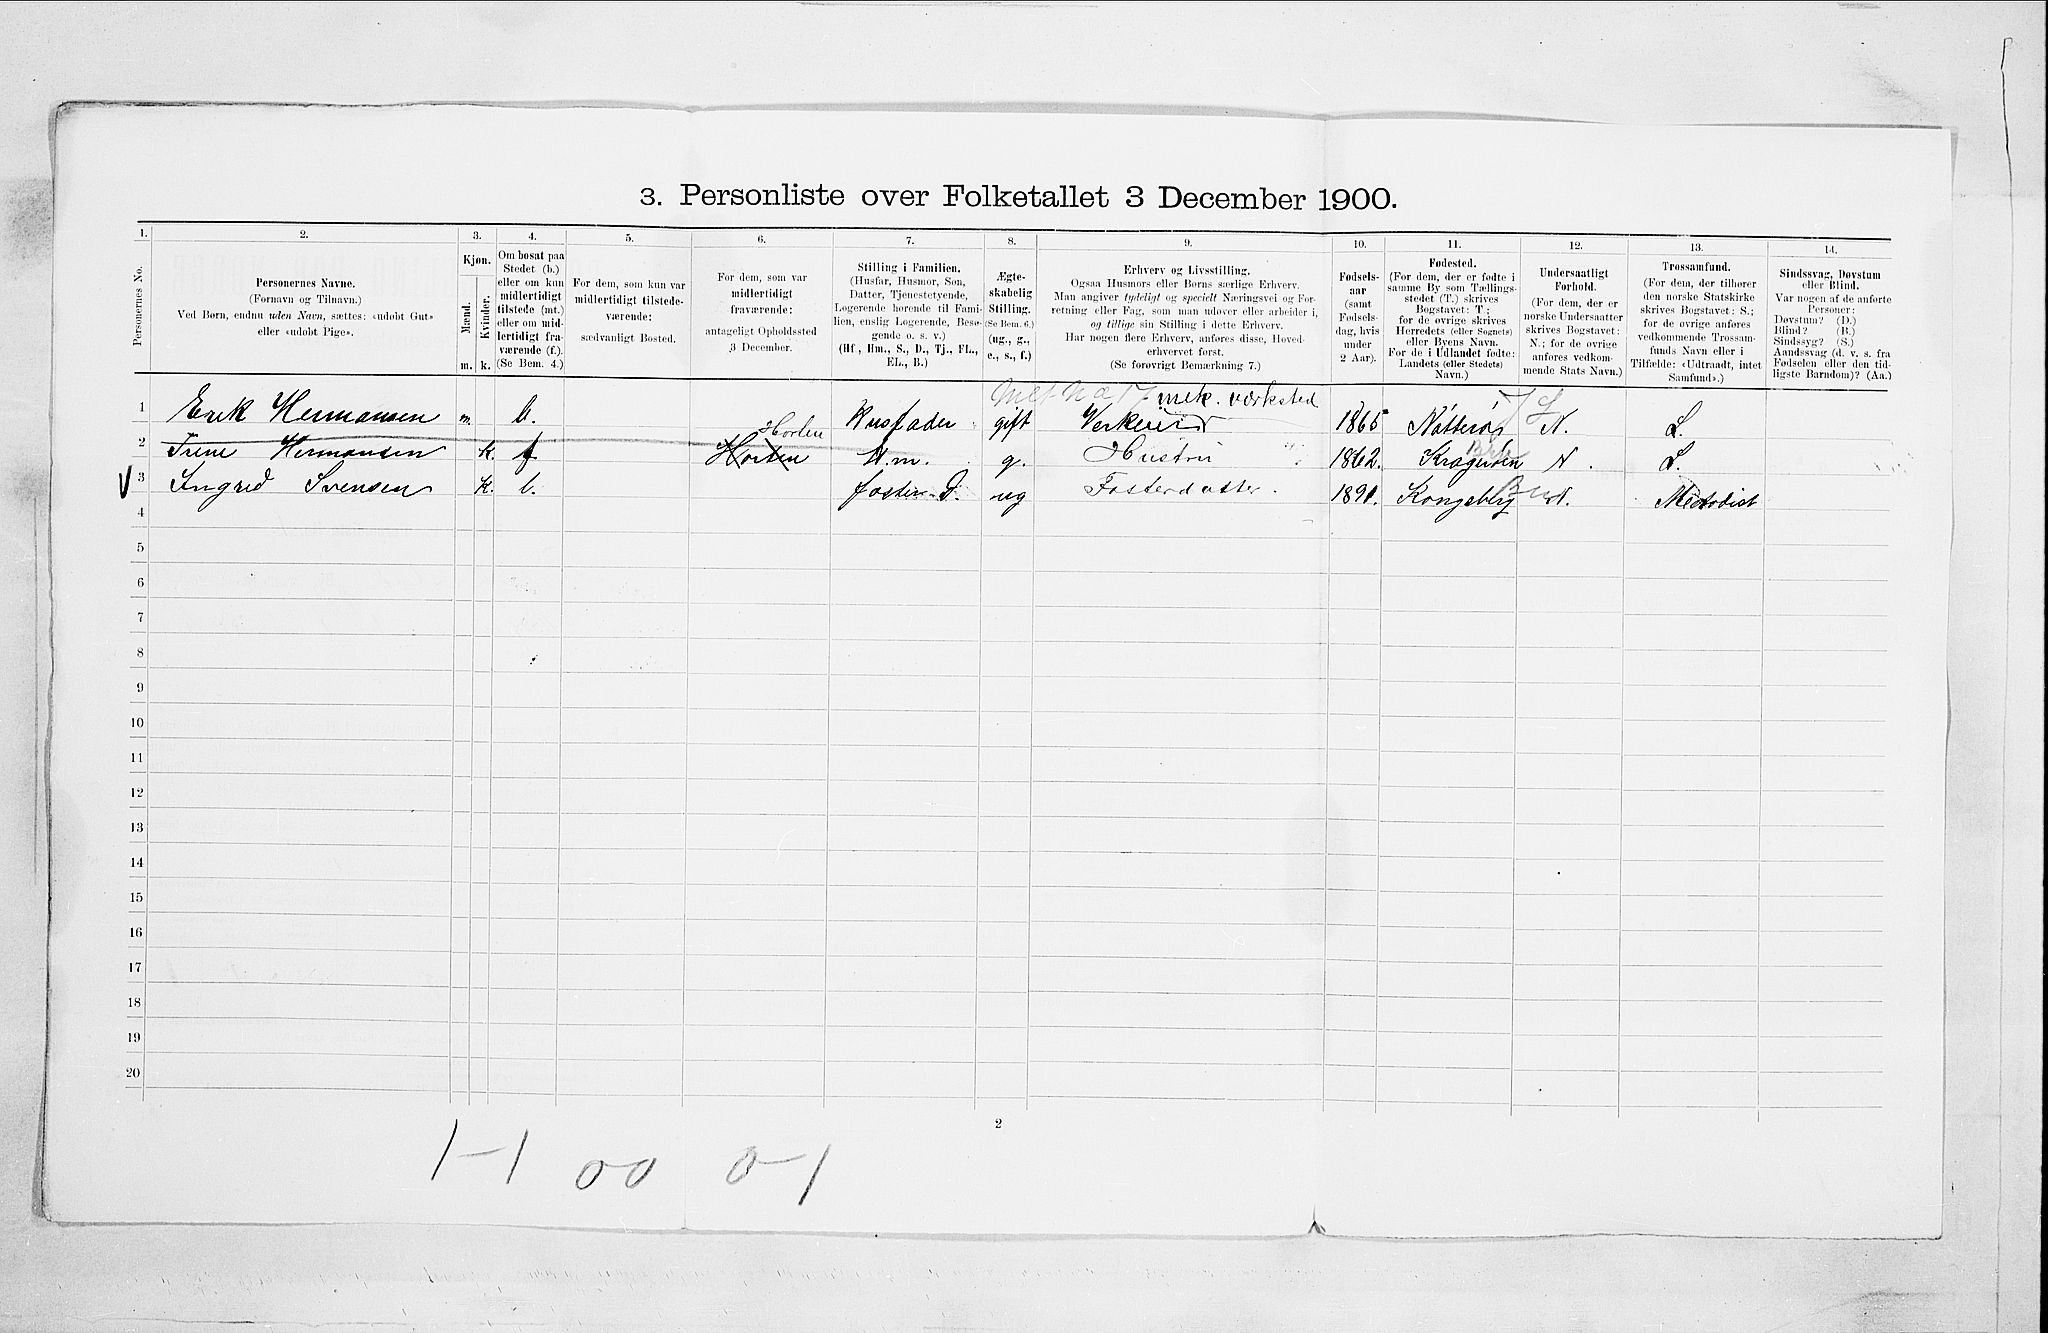 3. Personliste over Folketallet 3 December 1900.
1. 2. 3. 4. 5. 6. 7. 8. 9. 10. 11. 12. 13. 14.
Personernes No.
Personernes Navne.
(Fornavn og Tilnavn.)
Ved Børn, endnu uden Navn, sættes: «udøbt Gut»
eller «udøbt Pige».
Kjøn.
Mænd.
Kvinder.
m. k.
Om bosat paa
Stedet (b.)
eller om kun
midlertidigt
tilstede (mt.)
eller om mid-
lertidigt fra-
værende (f.).
(Se Bem. 4.)
For dem, som kun var
midlertidigt tilstede-
værende:
sædvanligt Bosted.
For dem, som var
midlertidigt
fraværende:
antageligt Opholdssted
3 December.
Stilling i Familien.
(Husfar, Husmor, Søn,
Datter, Tjenestetyende,
Logerende hørende til Fami-
lien, enslig Logerende, Besø-
gende o. s. v.)
(Hf., Hm., S., D., Tj., FL.,
EL., B.)
Ægte-
skabelig
Stilling.
(Se Bem. 6.)
(ug., g.,
e., s., f.)
Erhverv og Livsstilling.
Ogsaa Husmors eller Børns særlige Erhverv.
Man angiver tydeligt og specielt Næringsvei og For-
retning eller Fag, som man udøver eller arbeider i,
og tillige sin Stilling i dette Erhverv.
Har nogen flere Erhverv, anføres disse, Hoved-
erhvervet først.
(Se forøvrigt Bemærkning 7.)
Fødsels-
aar
(samt
Fødsels-
dag, hvis
under
2 Aar).
Fødested.
(For dem, der er fødte i
samme By som Tællings-
stedet (T.) skrives
Bogstavet: T.;
for de øvrige skrives
Herredets (eller Sognets)
eller Byens Navn.
For de i Udlandet fødte:
Landets (eller Stedets)
Navn.)
Undersaatligt
Forhold.
(For dem, der er
norske Undersaatter
skrives Bogstavet:
N.; for de øvrige
anføres vedkom-
mende Stats Navn.)
Trossamfund.
(For dem, der tilhører
den norske Statskirke
skrives Bogstavet: S.;
for de øvrige anføres
vedkommende Trossam-
funds Navn eller i
Tilfælde: «Udtraadt, intet
Samfund».)
Sindssvag, Døvstum
eller Blind.
Var nogen af de anførte
Personer:
Døvstum? (D.)
Blind? (B.)
Sindssyg? (S.)
Aandssvag (d. v. s. fra
Fødselen eller den tid-
ligste Barndom)? (Aa.)
mek. værksted
1 Erik Hermansen m. b. Husfader gift 1865 Nøtterø N.
Horten
2 Irene Hermansen k. f Horten H.m. g. Hustru 1862. Kragerøen N.
3 Ingrid Svensen k. b. foster. D. ug Fosterdatter. 1891. Kongsbg N. Metodist
4
5
6
7
8
9
10
11
12
13
14
15
16
17
18
19
20
2
1-1 00 0-1